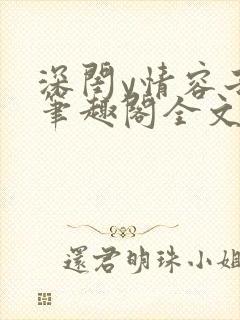 深闺y情容
笔趣阁全文
還君明珠小姐